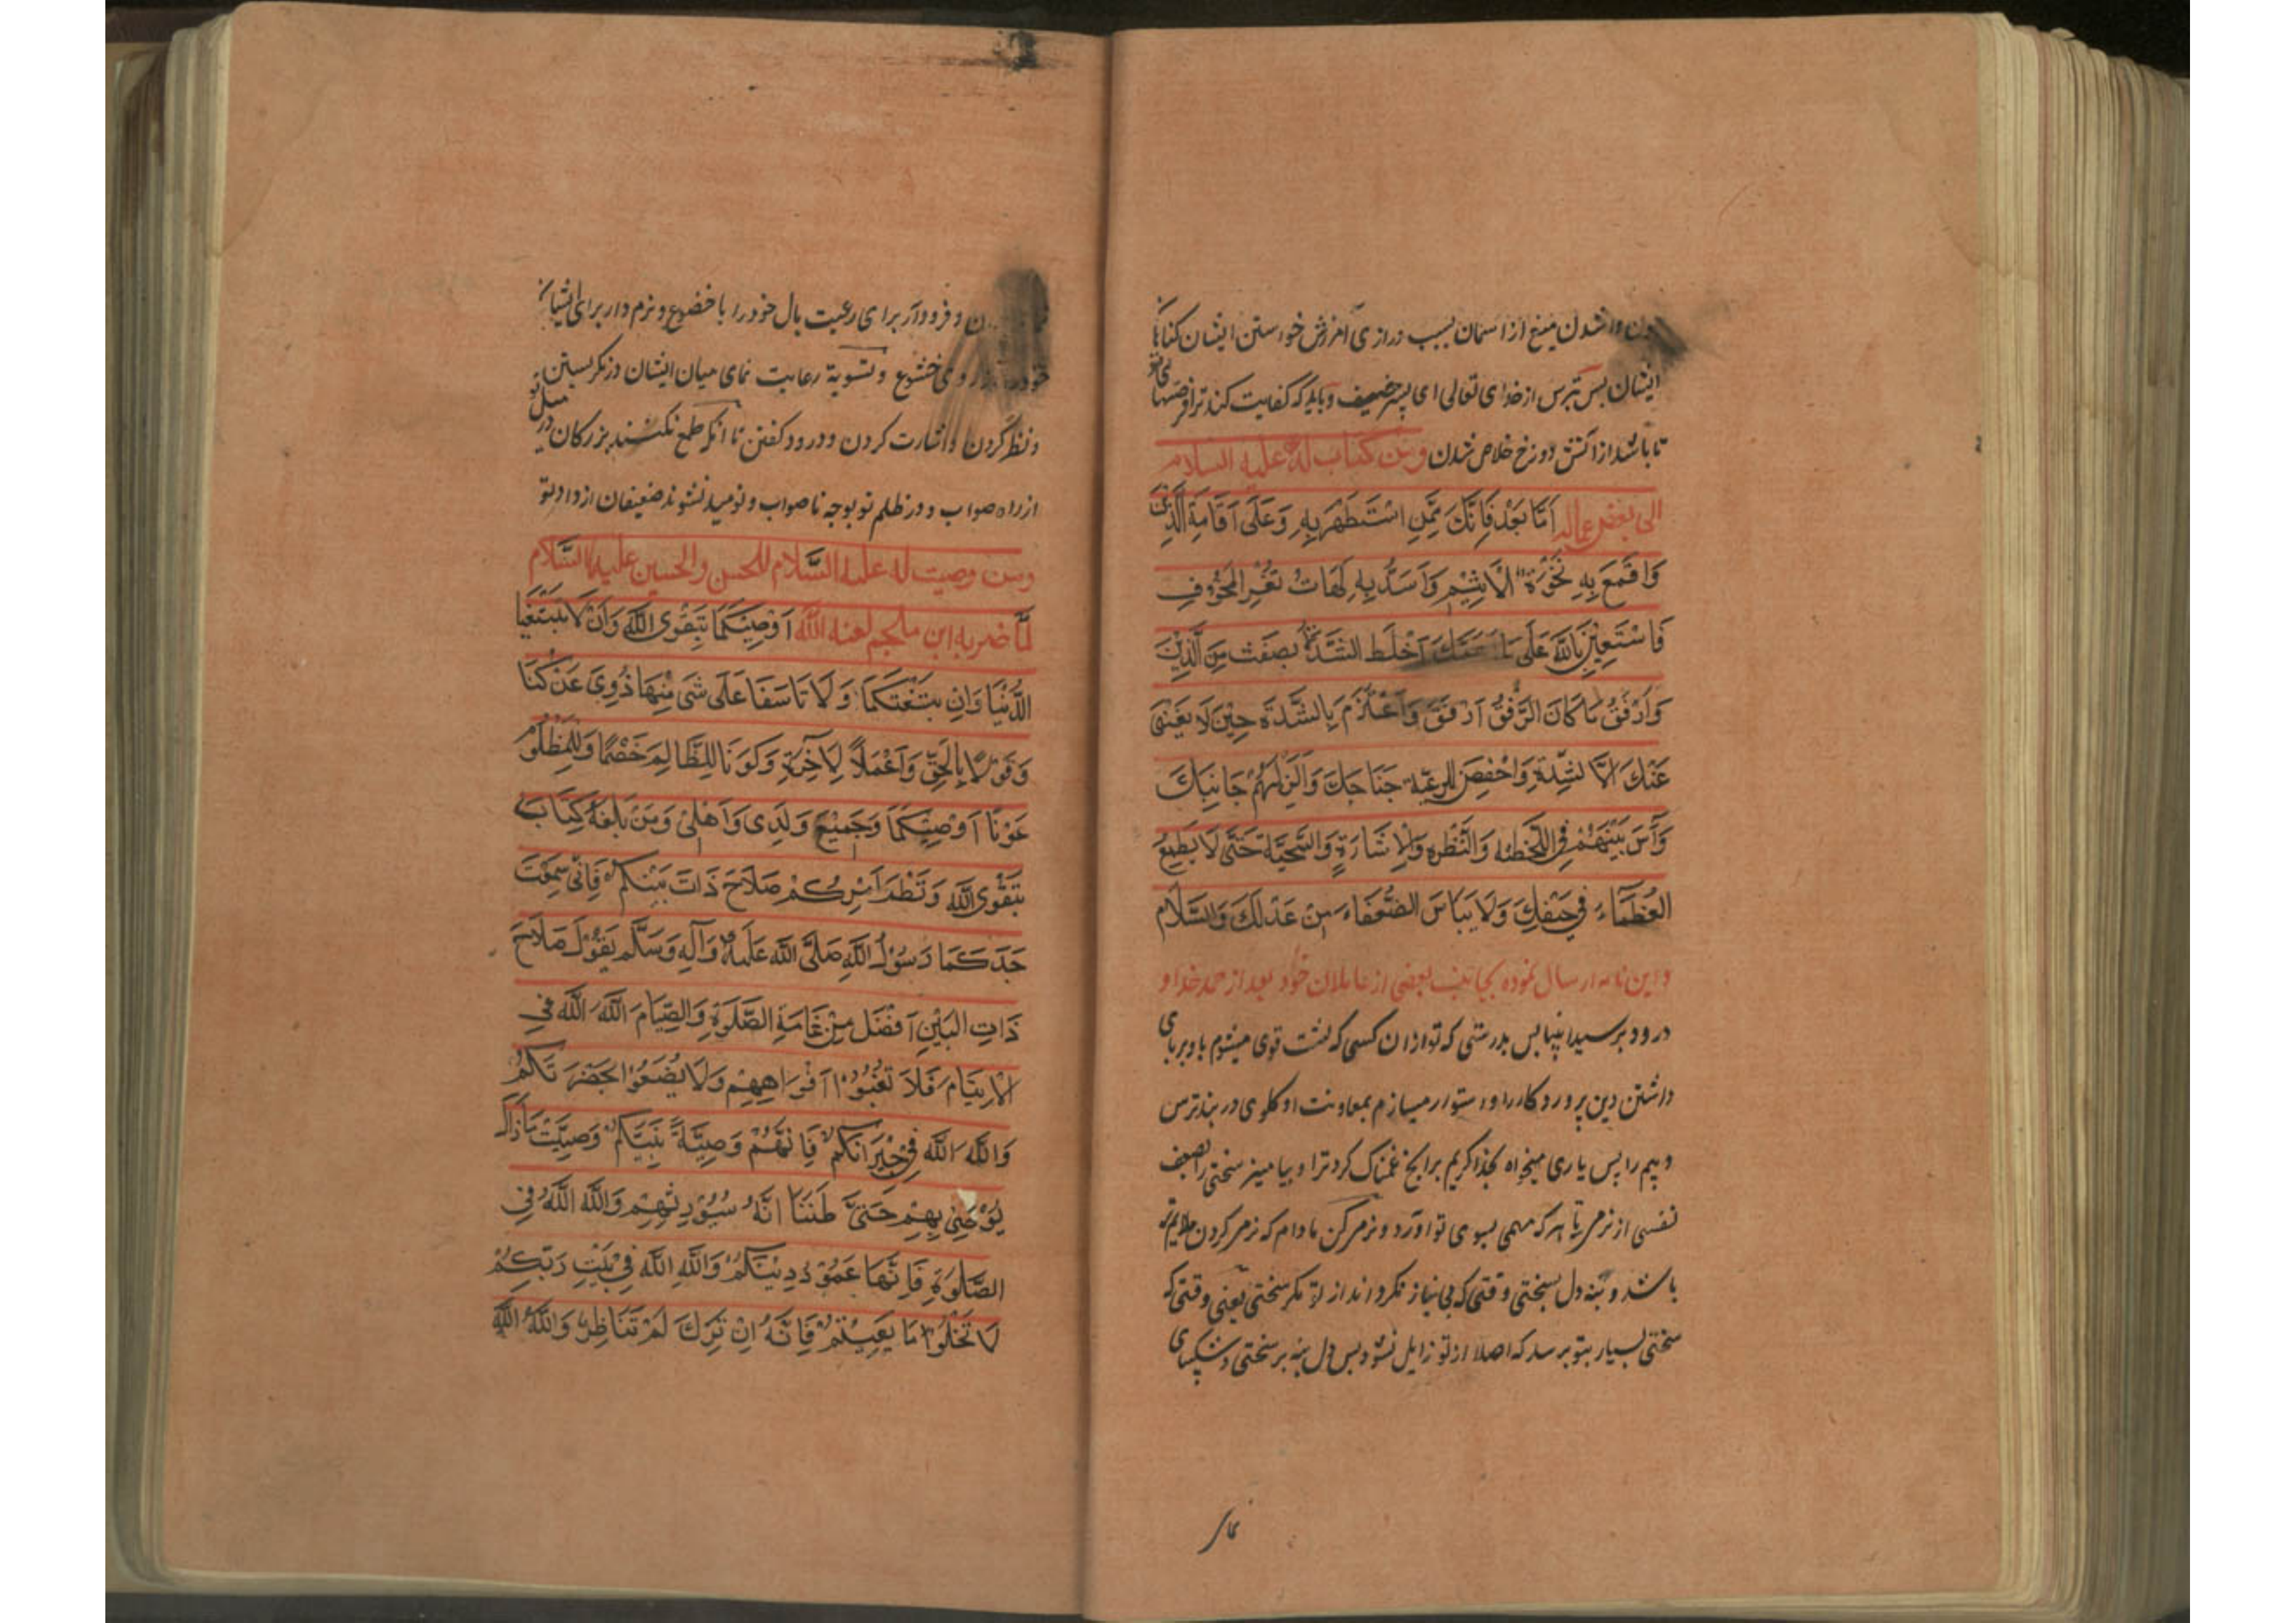 شدن میغ از آسمان بسبب درازی آمرزش خواستن ایشان کناها
ایشان پس بترس از خدای تعالی ای پسر ضعیف و باید که کفایت کند ترا قرصها
تا باشد از آتش دوزخ خلاص شدن ومن کتاب له علیه السلام
الی بعض عماله اَمَّا بَعْدُ فَاِنَّكَ مِمَّنِ اسْتَظْهَرَ بِهِ وَعَلَی اَقَامَةِ الَّذِیْن
وَاَقْمَعَ بِهِ نَخْوَةَ الْاَثِیْمِ وَاَسَدَّ بِهِ لَهَاتَ ثَغْرِ المَخُوْفِ
فَاسْتَعِیْنَ بِاللَّهِ عَلَی مَا اَخْلَط الشَّدَّةَ بِصَفَتٍ مِنَ الَّذِیْنَ
وَاَرْفَقُ مَا كَانَ الرَّفْقُ اَرْفَقَ وَاَعْتَزَمَ بِالشَّدَّةِ حِیْنَ لَا یَغْنَی
عَنْكَ اِلَّا لشِدَّةِ وَاحْفِضَ لِلرعیَّة جَنَاحَكَ وَاَلَنِ لَهُمْ جَانِبَاكَ
وَآسَ بَیْنَهُمْ فِی اللَّحْظَة وَالنَّظْرِه وَالْاِشَارَةٍ وَالتَّحِیَّةِ حَتَّی لَا یَطِمَعَ
العُظَمَآءُ فِی حَیْفِكَ وَلَا یَیَاسَ الضُّعَفَاءَ مِنْ عَدْلِكَ وَالسَّلَام
و این نامه ارسال نموده بجانب بعضی از عاملان خود بعد از حمد خدا و
درود بر سید انبیا پس بدرستی که تو از آن کسی که پشت قوی میشوم باو بر پای
داشتن دین پروردکار را و استوار میسازم بمعاونت او کلوی در بند ترس
و بیم را پس یاری میخواه بخدا کریم برانچ غمناک کرد ترا و بیامیز سختی را بضعف
نفسی از نرمی تا هر که مهمی بسوی تو آورد و نرمی کن مادام که نرمی کردن ملایم تر
باشد و بنه دل بسختی وقتی که بی نیاز نکرداند از تو مکر سختی یعنی وقتی که
سختی بسیار بتو برسد که اصلا از تو زایل نشود پس دل بنه بر سختی و شکیبای
نمای
و فرود آر برای رعیت بال خود را با خضوع و نرم دار برای ایشان
خود را از روی خشوع و تسویة رعایت نمای میان ایشان در نکریستن
و نظر کردن و اشارت کردن و درود کفتن تا انکه طمع نکنند بزرکان در میل تو
از راه صواب و در ظلم تو بوجه ناصواب و نومید نشوند ضعیفان از داد تو
ومن وصیت له علیه السَّلام للحسن والحسین علیهما السَّلام
لمَّا ضربه ابن ملجم لعنه الله اَوْصِیْكُمَا بِتَقْوَی اللَّهِ وَاَنْ لَا تَبْتَغْیَا
الدُّنْیَا وَاِنْ بَتَغْتَكَمَا وَلَا تَاسَفَا عَلَی شَیْ مِنْهَا ذُوِیَ عَنْكُمَا
وَقَوْلًا بِالْحَقِّ وَاَعْمَلاً لِآخِرَةِ وَكُوَنَا لِلظَّالِمِ خَصْمًا وَلِلْمَظْلُوْمِ
عَوْنًا اَوْصِیْكُمَا وَجَمِیْعَ وَلَدِی وَاَهْلِیْ وَمَنْ بَلَغَهُ كِتَابِ
بِتَقْوَی اللَّهِ وَنَظْمَ اَمْرِكُمْ صَلَاحَ ذَاتَ بَیْنِكُمْ فَاِنِّی سَمِعْتَ
جَدَّكُمَا رَسُوْلُ اللَّهِ صَلَّی اللَّه عَلَیْهِ وَآلِهِ وَسَلَّم یَقُوْلَ صَلَاحَ
ذَاتِ البَیْنِ اَفْضَلَ مِنْ عَامَةِ الصَّلَوةِ وَالصِّیَام اَللَّهَ اَللَّه فِی
الْاَیْتَامِ فَلَا تَغُبُّوْا اَفْوَاهِهِمْ وَلَا یُضَعُوْا بِحَضْرَتِكُمْ
وَاللَّهَ اَللَّه فِی جِیْرَانِكُمْ فَاِنَّهُمْ وَصِیَّةً نَبِیِّكُمْ وَصِیَّت مَازَالَ
یُوْصِیْ بِهِمْ حَتَّی ظَنَنَّا اَنَّهُ سَیُوْرِثُهِمْ وَاللَّه اَللَّهُ فِی
الصَّلَوةِ فَاِنَّهَا عَمُوْدُ دِیْنَكُمْ وَاللَّهِ اَللَّه فِیْ بَیْتِ رَبِّكُمْ
لَا تَخْلُوْا مَا بَقِیْتُمْ فَاِنَّهُ اِنْ تُرِكَ لَمْ تَنَاظِرُ وَاللَّهَ اَللَّه